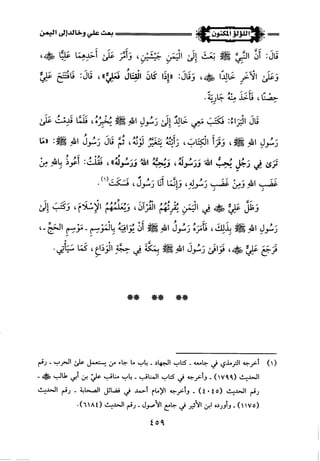 اللؤلؤ المكنون
بعث علي وخالد إلى اليمن
قَالَ: أَنَّ النَّبِيَّ ﷺ بَعَثَ إِلَى الْيَمَنِ جَيْشَيْنِ، وَأَمَّرَ عَلَى أَحَدِهِمَا عَلِيًّا ،
وَعَلَى الْآخَرِ خَالِدًا ، وَقَالَ: «إِذَا كَانَ الْقِتَالُ فَعَلِيٌّ»، قَالَ: فَافْتَتَحَ عَلِيٌّ
حِصْنًا، فَأَخَذَ مِنْهُ جَارِيَةً.
قَالَ الْبَرَاءُ: فَكَتَبَ مَعِي خَالِدٌ إِلَى رَسُولِ اللهِ ﷺ يُخْبِرُهُ، فَلَمَّا قَدِمْتُ عَلَى
رَسُولِ اللهِ ﷺ، وَقَرَأَ الْكِتَابَ، رَأَيْتُهُ يَتَغَيَّرُ لَوْنُهُ، ثُمَّ قَالَ رَسُولُ اللهِ ﷺ: «مَا
تَرَى فِي رَجُلٍ يُحِبُّ اللهَ وَرَسُولَهُ، وَيُحِبُّهُ اللهُ وَرَسُولُهُ»، فَقُلْتُ: أَعُوذُ بِاللهِ مِنْ
غَضَبِ اللهِ وَمِنْ غَضَبِ رَسُولِهِ، وَإِنَّمَا أَنَا رَسُولٌ، فَسَكَتَ(١).
وَظَلَّ عَلِيٌّ  فِي الْيَمَنِ يُقْرِئُهُمُ الْقُرْآنَ، وَيُعَلِّمُهُمُ الْإِسْلَامَ، وَكَتَبَ إِلَى
رَسُولِ اللهِ ﷺ بِذَلِكَ، فَأَمَرَهُ رَسُولُ اللهِ ﷺ أَنْ يُوَافِيَهُ بِالْمَوْسِمِ - مَوْسِمِ الْحَجِّ -،
فَرَجَعَ عَلِيٌّ ، فَوَافَى رَسُولَ اللهِ ﷺ بِمَكَّةَ فِي حِجَّةِ الْوَدَاعِ، كَمَا سَيَأْتِي.
** ** **
(١) أخرجه الترمذي في جامعه - كتاب الجهاد - باب ما جاء من يستعمل على الحرب - رقم
الحديث (١٧٩٩) - وأخرجه في كتاب المناقب - باب مناقب علي بن أبي طالب  -
رقم الحديث (٤٠٤٥) - وأخرجه الإمام أحمد في فضائل الصحابة - رقم الحديث
(١١٧٥) - وأورده ابن الأثير في جامع الأصول - رقم الحديث (٦١٨٤).
٤٥٩